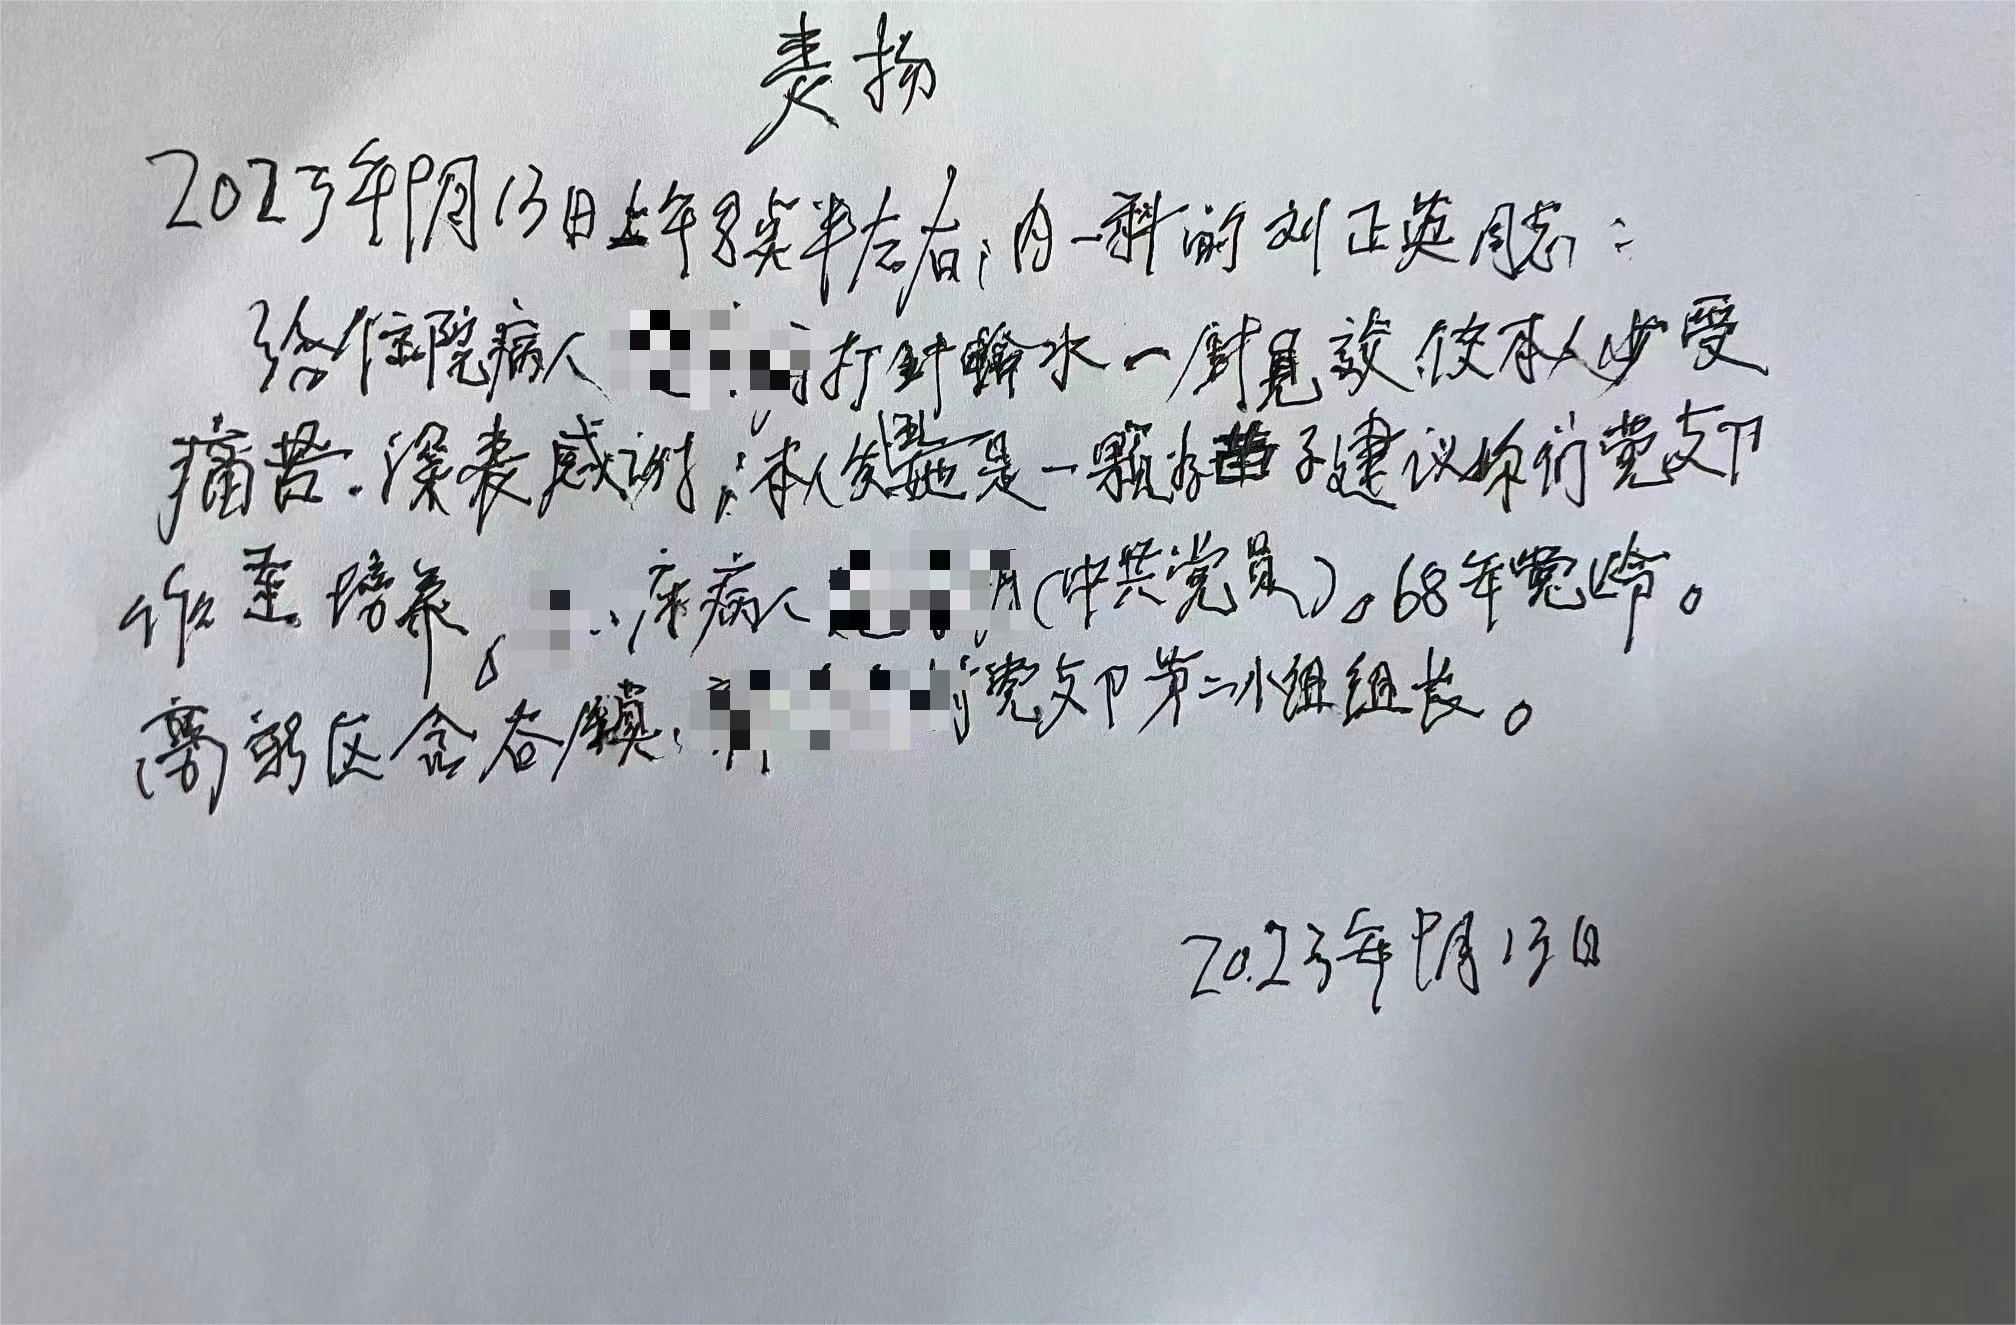 表扬
2023年9月13日上午8点半左右,内一科的刘正英同志:
给住院病人 打针输水一针见效,使本人少受
痛苦.深表感谢;本人发现她是一颗好苗子建议你们党支部
作重培养。 床病人 (中共党员)。68年党龄。
高新区含谷镇, 党支部第二小组组长。
2023年9月13日